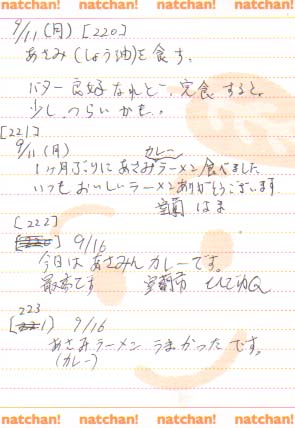 natchan! natchan! natchan! natchan!
9/11(月) [220]
あさみ(しょう油)を食す。
バター良好なれど、完食すると。
少しつらいかも。
[221]
9/11(月)
カレー
1ヶ月ぶりにあさみラーメン食べました
いつもおいしいラーメンありがとうございます
室蘭 はま
[222]
9/16
今日はあさみんカレーです。
最高です 室蘭市 ヒデのQ
223
[221] 9/16
あさみラーメンうまかったです。
(カレー)
natchan! natchan! natchan! natchan!